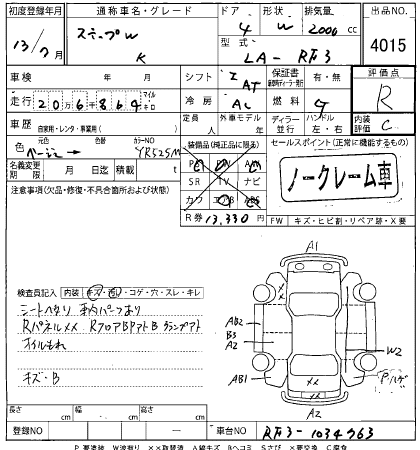 初度登録年月 通称車名・グレード ドア 形状 排気量 出品NO.
13/7月 ステップW K 4 W 2000 cc 4015
型式 LA-RF3
車検 年 月 シフト IAT 保証書 有・無 評価点
走行 20万6千864 マイル キロ 冷房 AC 燃料 G R
車歴 自家用・レンタ・事業用( ) 定員 人 外車モデル 年 ディーラー 並行 ハンドル 左・右 内装評価 C
色 元色 ベージュ 色替 カラーNO YR525M
装備品(純正品に限る)
セールスポイント(正常に機能するもの)
名義変更期限 月 日迄 積載 t
PS PW AW
SR TV ナビ
カワ エアB ABS
ノークレーム車
注意事項(欠品・修復・不具合箇所および状態)
R券 13,330円
FW キズ・ヒビ割・リペア跡・X要
検査員記入 内装 キズ・汚レ・コゲ・穴・スレ・キレ
シートヘタリ 車内パーツあり
Rパネルメメ RフロアBPアトB クランプアト
オイルもれ
キズ・B
A1
AB2
B3
A2
W2
AB1
P ハゲ
××
××
A2
長さ cm 幅 cm 高さ cm
登録NO 車台NO RF3-1034763
P要塗装 W波有り ××取替済 A線キズ Bヘコミ Sさび X要交換 C腐食